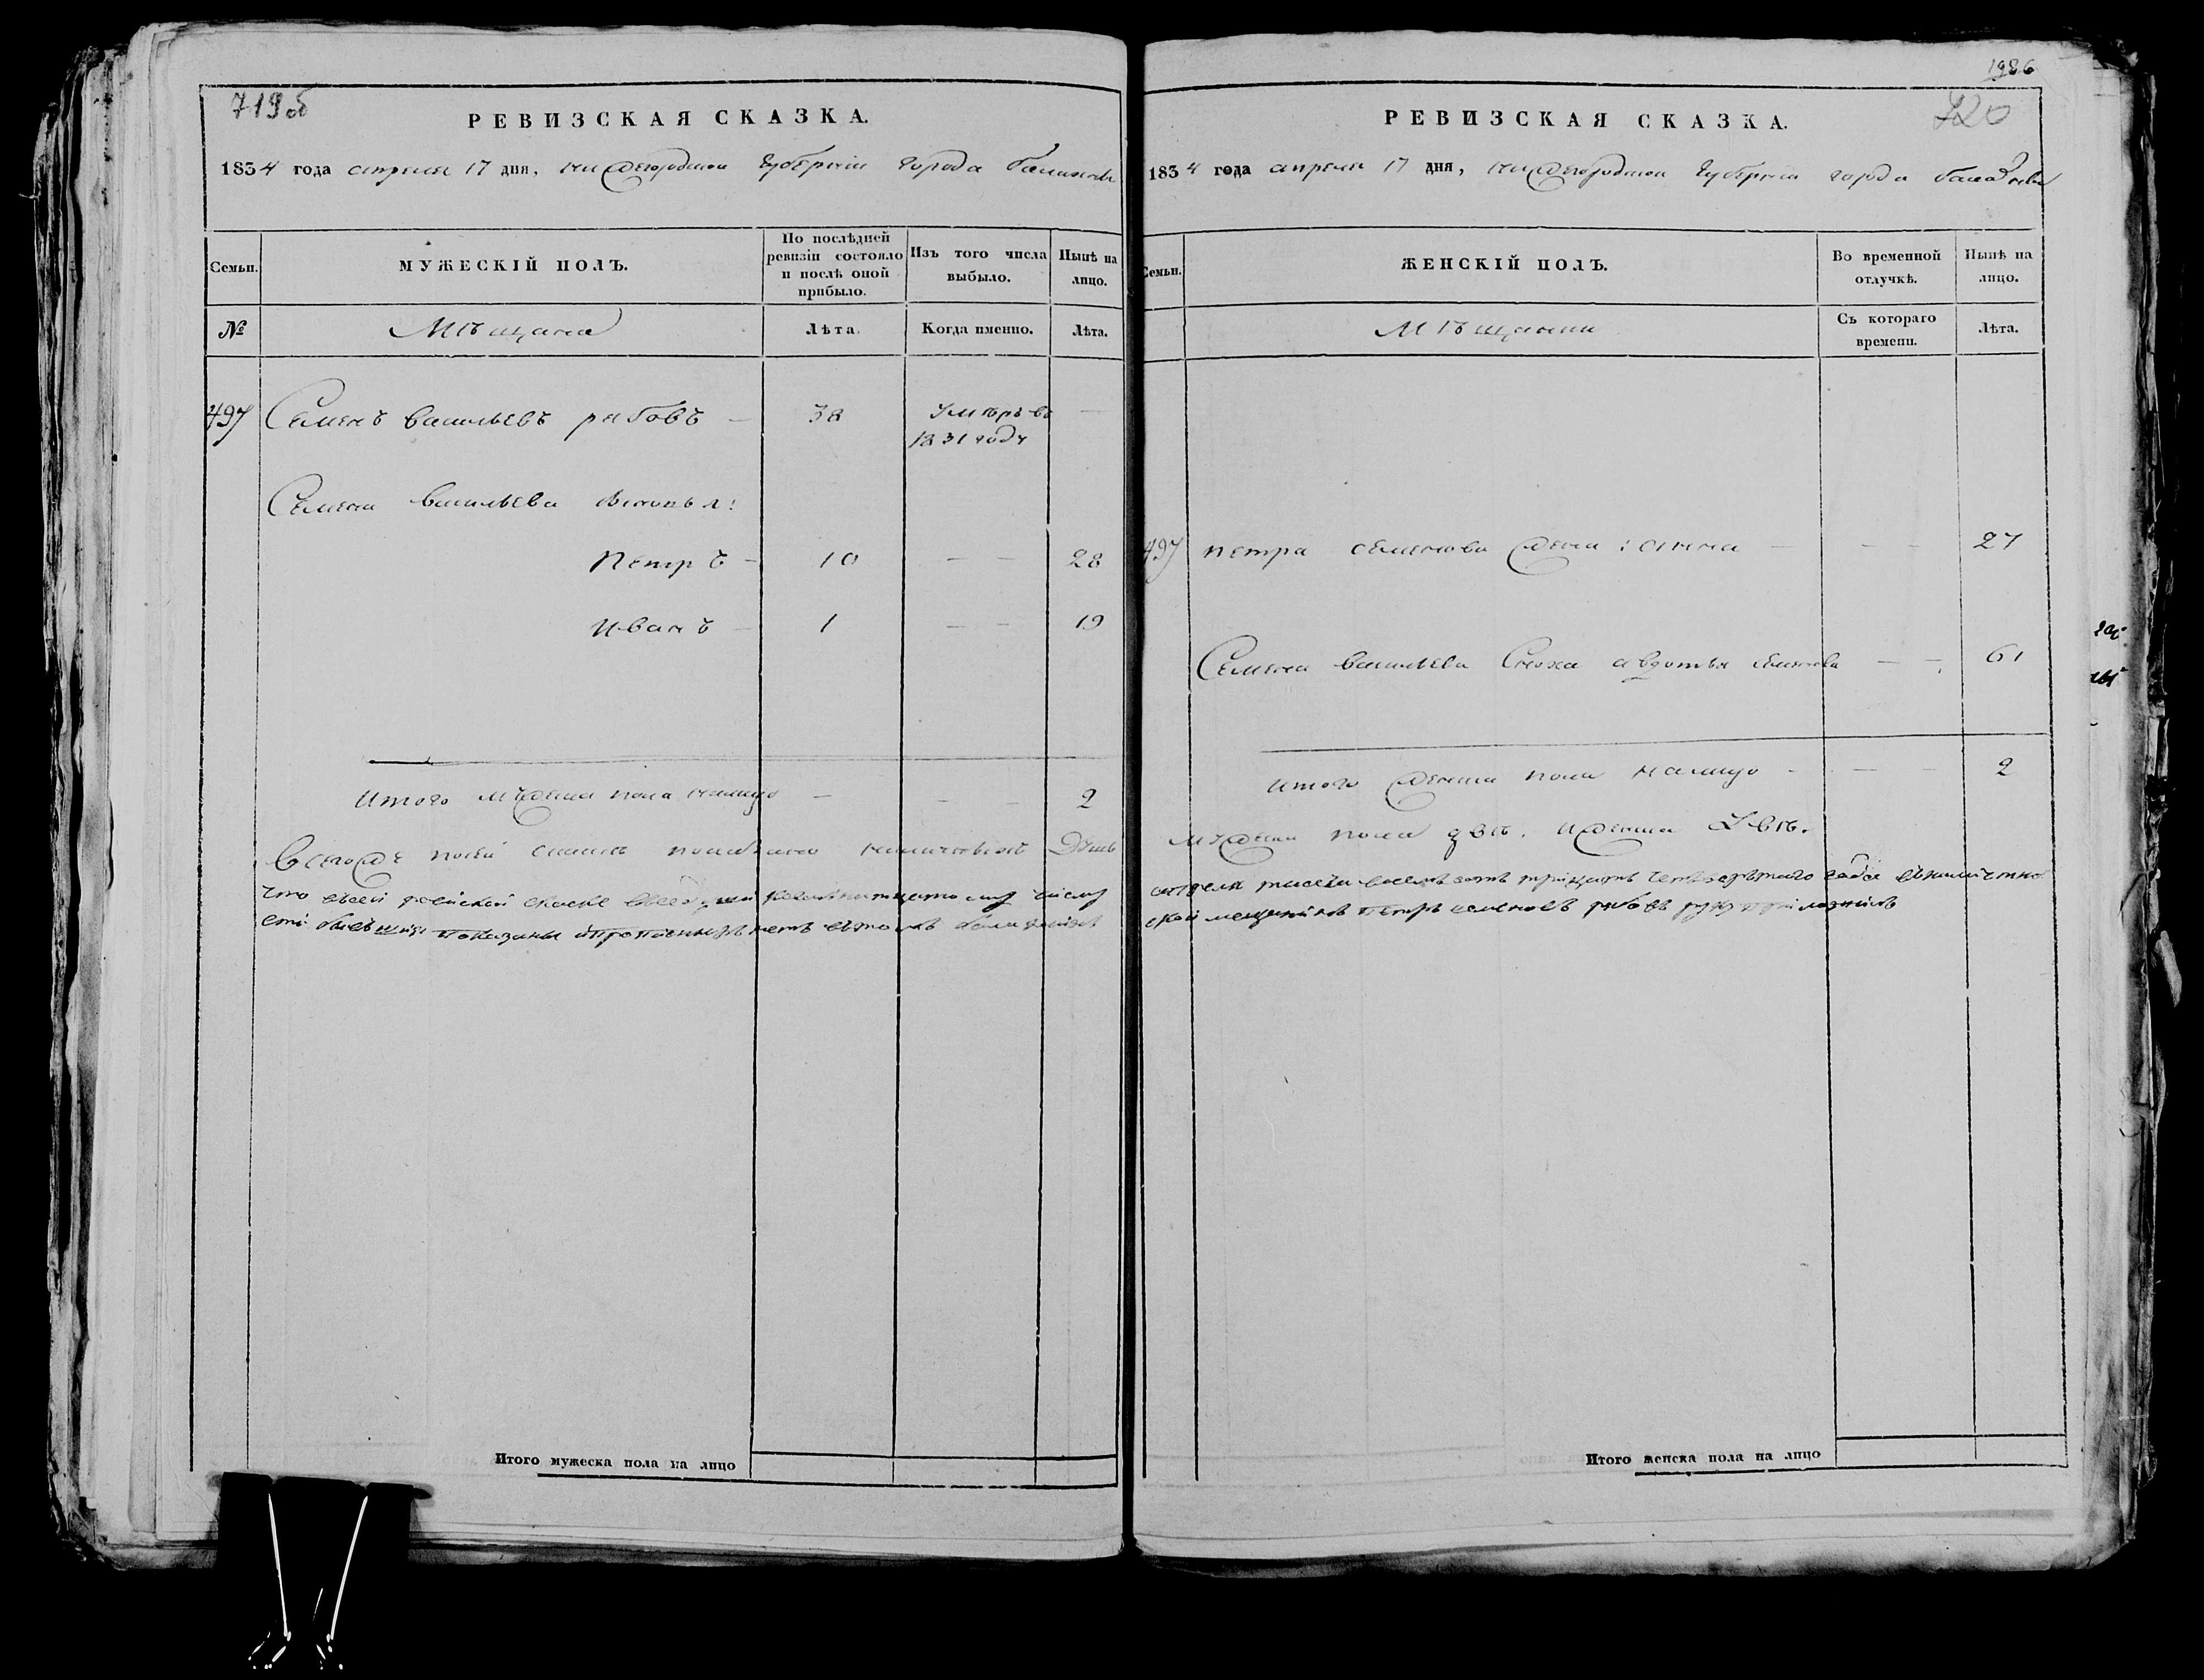 719об
РЕВИЗСКАЯ СКАЗКА.
1834 года апреля 17 дня, нижегородской губернии города балахны
Семьи.
МУЖЕСКІЙ ПОЛЪ.
По послѣдней ревизіи состояло и послѣ оной прибыло.
Изъ того числа выбыло.
Нынѣ на лицо.
№
Мѣщана
Лѣта.
Когда именно.
Лѣта.
497 Семенъ васильевъ рябовъ — 38 Умѣръ въ —
1831 году
Семена васильева сыновья:
Петръ — 10 — — 28
Иванъ — 1 — — 19
Итого мужеска пола налицо — — — 2
Всего же посей сказке показано наличныхъ Душъ
что
Итого мужеска пола на лицо
1986
720
РЕВИЗСКАЯ СКАЗКА.
1834 года апреля 17 дня, нижегородской губернии города балахны
Семьи.
ЖЕНСКІЙ ПОЛЪ.
Во временной отлучкѣ.
Нынѣ на лицо.
Мѣщанки
Съ котораго времени.
Лѣта.
497 петра семенова жена: анна — — — 27
Семена васильева Сноха авдотья — — 61
Итого женска пола налицо - — — 2
Мужеска пола двѣ. Иженска Двѣ.
апреля тысяча восемъ сотъ тритцать четвертаго года
ской мещанинъ Петръ семеновъ рябовъ руку приложилъ
Итого женска пола на лицо